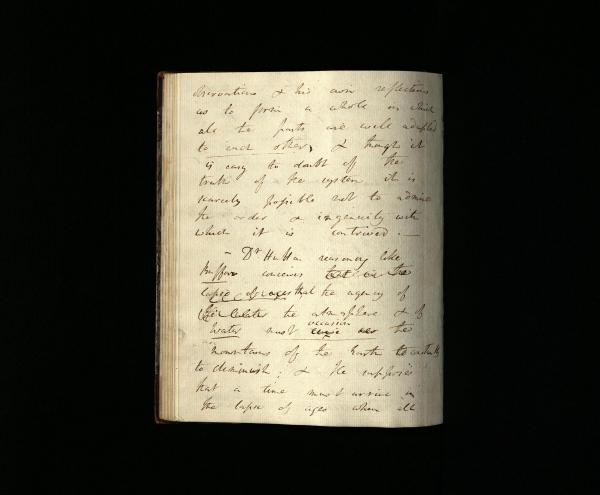 observations & his own reflections
as to form a whole in which
all the parts are well adapted
to each other, & though it
is easy to doubt of the
truth of the system it is
scarcely possible not to admire
the order & ingenuity with
which it is contrived. —
– Dr Hutton reasoning like
Buffon conceives that in the
lapse of ages that the agency of
the atmosphere & of
Water must occasion the
mountains of the Earth constantly
to diminish; & He supposes
that a time must arrive in
the lapse of ages when all